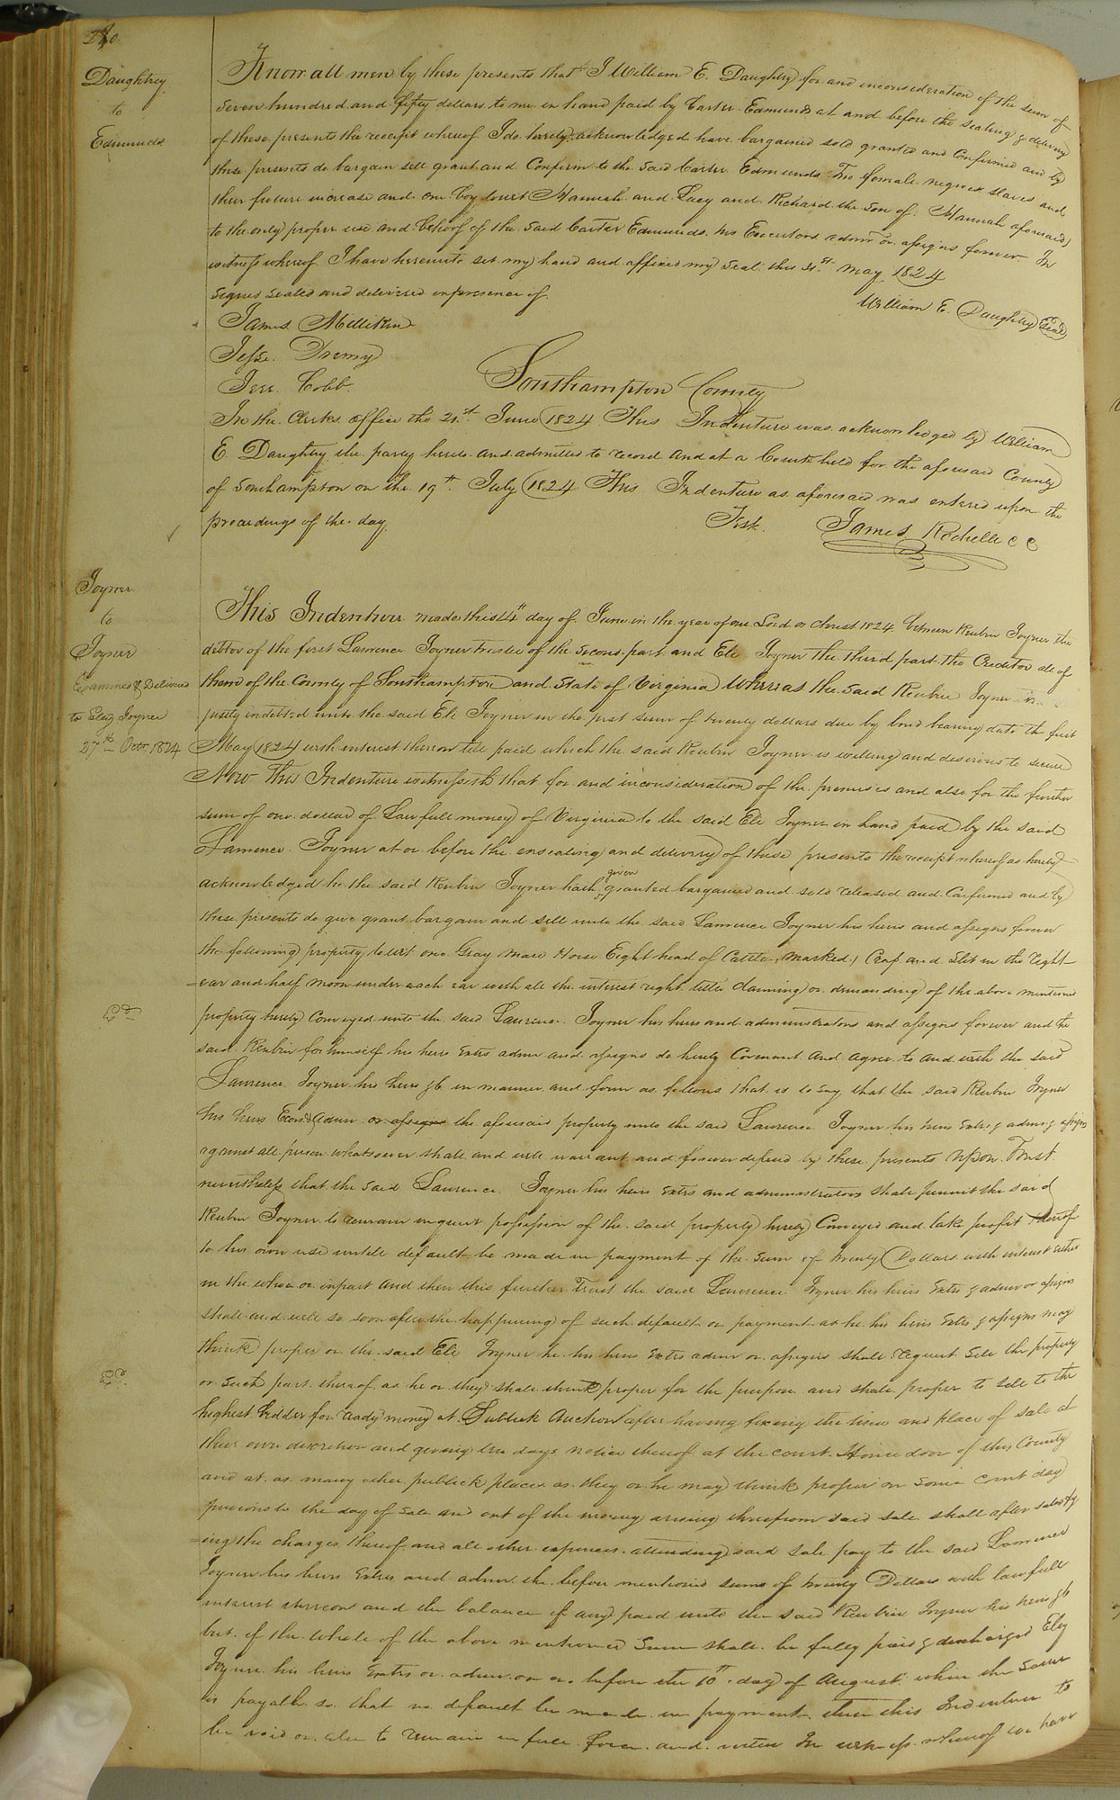 Daughtry
to
Edmunds
Know all men by these presents that I William E. Daughtry for and inconsideration of the sum of
Seven hundred and fifty dollars to me in hand paid by Carter Edmunds at and before the sealing & delivery
of these presents the receipt whereof I do hereby acknowledged have bargained sold granted and Confirmed and by
these presents do bargain sell grant and Confirm to the said Carter Edmunds Two female negroes slaves and
their future increase and one boy towit Hannah and Lucy and Richard the Son of Hannah aforesaid
to the only proper use and behoof of the said Carter Edmunds his Executors admrs or assigns forever In
witness whereof I have hereunto set my hand and affixed my Seal this 21st May 1824
Signed Sealed and delivered in presence of
William E. Daughtry Seal
James Millikin
Jesse
Cobb
Southampton County
In the Clerks office the 21st June 1824 This Indenture was acknowledged by William
E. Daughtry the party hereto and admitted to record and at a Court held for the aforesaid County
of Southampton on the 19th July 1824 This Indenture as aforesaid was entered upon the
proceedings of the day.
Test. James Rochelle CC
Joyner
to
Joyner
Examined & Delivered
to Eley Joyner
27th Octr 1824
This Indenture made this 4th day of June in the year of our Lord & Christ 1824 between Reubin Joyner the
debtor of the first Lawrence Joyner trustee of the second part and Eli Joyner the third part the Creditor all of
them of the County of Southampton and State of Virginia Whereas the said Reubin Joyner is
justly indebted unto the said Eli Joyner in the just sum of twenty dollars due by bond bearing date the first
May 1824 with interest thereon till paid which the said Reubin Joyner is willing and desirous to secure
Now This Indenture witnesseth that for and inconsideration of the premises and also for the further
sum of one dollar of Lawfull money of Virginia to the said Eli Joyner in hand paid by the said
Lawrence Joyner at or before the ensealing and delivery of these presents the receipt whereof as hereby
acknowledged he the said Reubin Joyner hath given granted bargained and sold released and Confirmed and by
these presents do give grant bargain and sell unto the said Lawrence Joyner his heirs and assigns forever
the following property towit one Gray mare Horse Eight head of Cattle, marked, Crop and Slit in the right
ear and half moon under each ear with all the interest right title Claiming or demanding of the above mentioned
property hereby Conveyed unto the said Lawrence Joyner his heirs and administrators and assigns forever and the
said Reubin for himself his heirs Extrs admr and assigns do hereby Covenant and agree to and with the said
Lawrence Joyner his heirs &c in manner and form as follows that is to say that the said Reubin Joyner
his heirs admr or assigns the aforesaid property unto the said Lawrence Joyner his heirs Extrs & admr & assigns
against all person whatsoever shall and will warrant and forever defend by these presents Upon Trust
nevertheless that the said Lawrence Joyner his heirs Extrs and administrators shall permit the said
Reubin Joyner to remain in quiet possession of the said property hereby Conveyed and take profit thereof
to his own use untill default be made in payment of the sum of twenty Dollars with interest either
in the whole or inpart and then this further Trust the said Lawrence Joyner his heirs Extrs & admr or assigns
shall and will so soon after the happening of such default or payment as he his heirs Extrs & assigns may
think proper or the said Eli Joyner he his heirs Extrs admr or assigns shall request Sell the property
or such part thereof as he or they shall think proper for the purpose and shall proper to sell to the
highest bidder for ready money at Publick Auction after having fixing the time and place of sale at
their own discretion and giving ten days notice thereof at the court House door of this County
and at as many other publick places as they or he may think proper on some court day
previous to the day of sale and out of the money arising therefrom said sale shall after satisfy
ing the charges thereof and all other expenses attending said sale pay to the said Lawrence
Joyner his heirs Extrs and admr the before mentioned sums of twenty Dollars with lawfull
interest thereon and the balance if any paid unto the said Reubin Joyner his heirs &c
but if the whole of the above mentioned Sum shall be fully paid & discharged Eley
Joyner his heirs Extrs or admr on or before the 10th day of August when the same
is payable so that no default be made in payment, then this Indenture to
be void or else to remain in full force and virtue In witness whereof we have